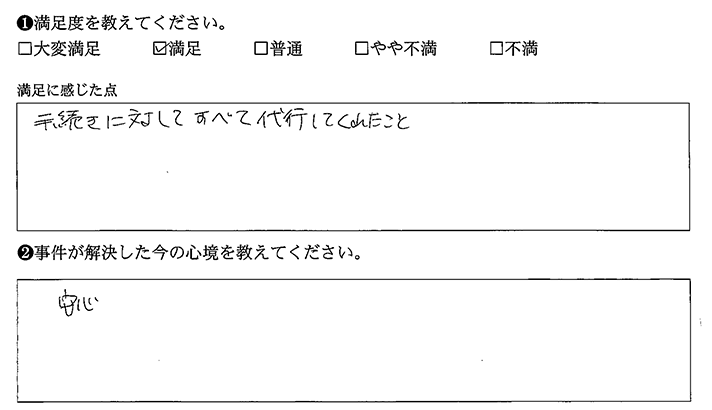 ❶満足度を教えてください。
☐大変満足 ☑満足 ☐普通 ☐やや不満 ☐不満
満足に感じた点
手続きに対してすべて代行してくれたこと
❷事件が解決した今の心境を教えてください。
安心